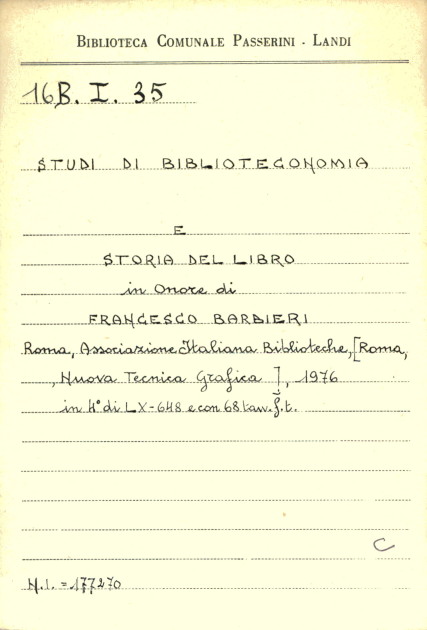 BIBLIOTECA COMUNALE PASSERINI - LANDI
16B. I. 35
STUDI DI BIBLIOTECONOMIA
E
STORIA DEL LIBRO
in Onore di
FRANCESCO BARBIERI
Roma, Associazione Italiana Biblioteche, [Roma,
, Nuova Tecnica Grafica ], 1976
in 4° di LX-648 e con 68 tav. f. t.
C
N.I. = 177270